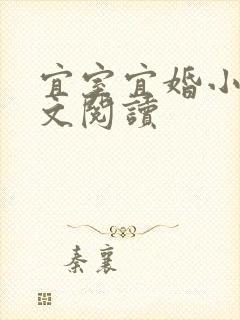 宜室宜婚小
文閱讀
秦襄